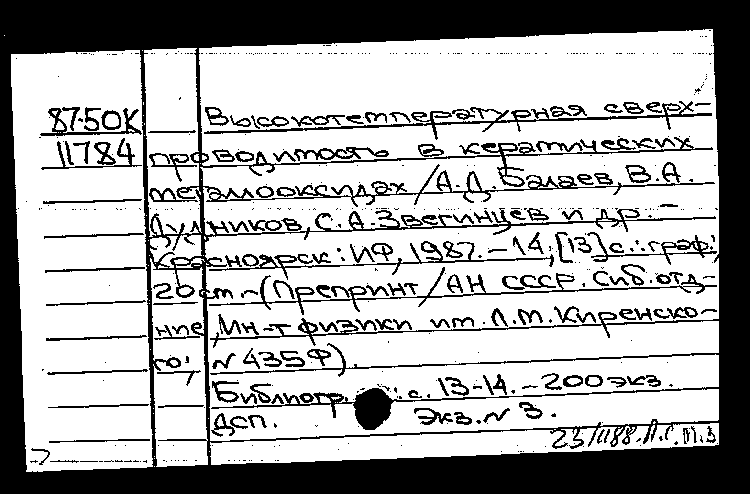 87-50К Высокотемпературная сверх-
11784 проводимость в керамических
металлооксидах/А.Д. Балаев, В.А.
Дудников, С.А. Звегинцев и др. -
Красноярск: ИФ, 1987. - 14, [13] с.: граф.;
20 см. - (Препринт/АН СССР. Сиб. отд-
ние, Ин-т физики им. Л.М. Киренско-
го; N 435Ф).
Библиогр.: с. 13-14. - 200 экз.
ДСП. Экз. N 3.